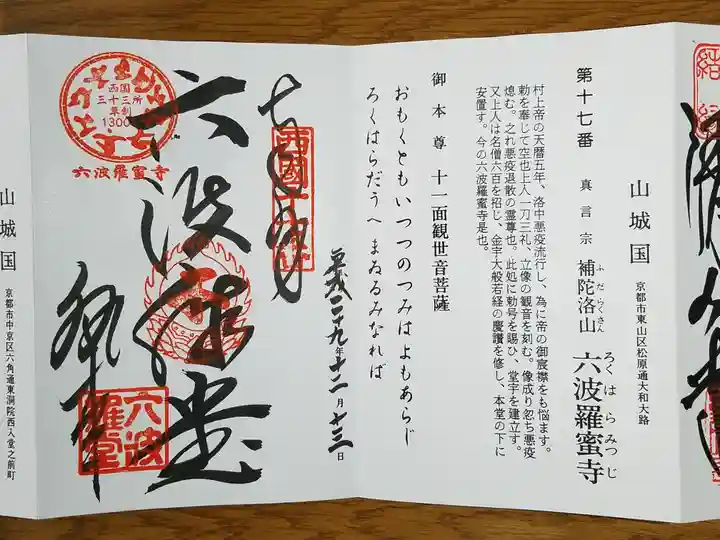 山城国
京都市東山区松原通大和大路
第十七番
真言宗
補陀洛山
ふだらくさん
六波羅蜜寺
ろくはらみつじ
村上帝の天暦五年、洛中悪疫流行し、為に帝の御宸襟をも悩ます。
勅を奉じて空也上人一刀三礼、立像の観音を刻む。像成り忽ち悪疫
熄む。之れ悪疫退散の霊尊也。此処に勅号を賜ひ、堂宇を建立す。
又上人は名僧六百を招じ、金字大般若経の慶讃を修し、本堂の下に
安置す。今の六波羅蜜寺是也。
御本尊 十一面観世音菩薩
おもくともいつつのつみはよもあらじ
ろくはらだうへ まゐるみなれば
平成二十九年十二月十三日
西国十七番
六波羅堂
西国
三十三所
草創
1300年
六波羅蜜寺
六波羅堂
山城国
京都市中京区六角通東洞院西入堂之前町